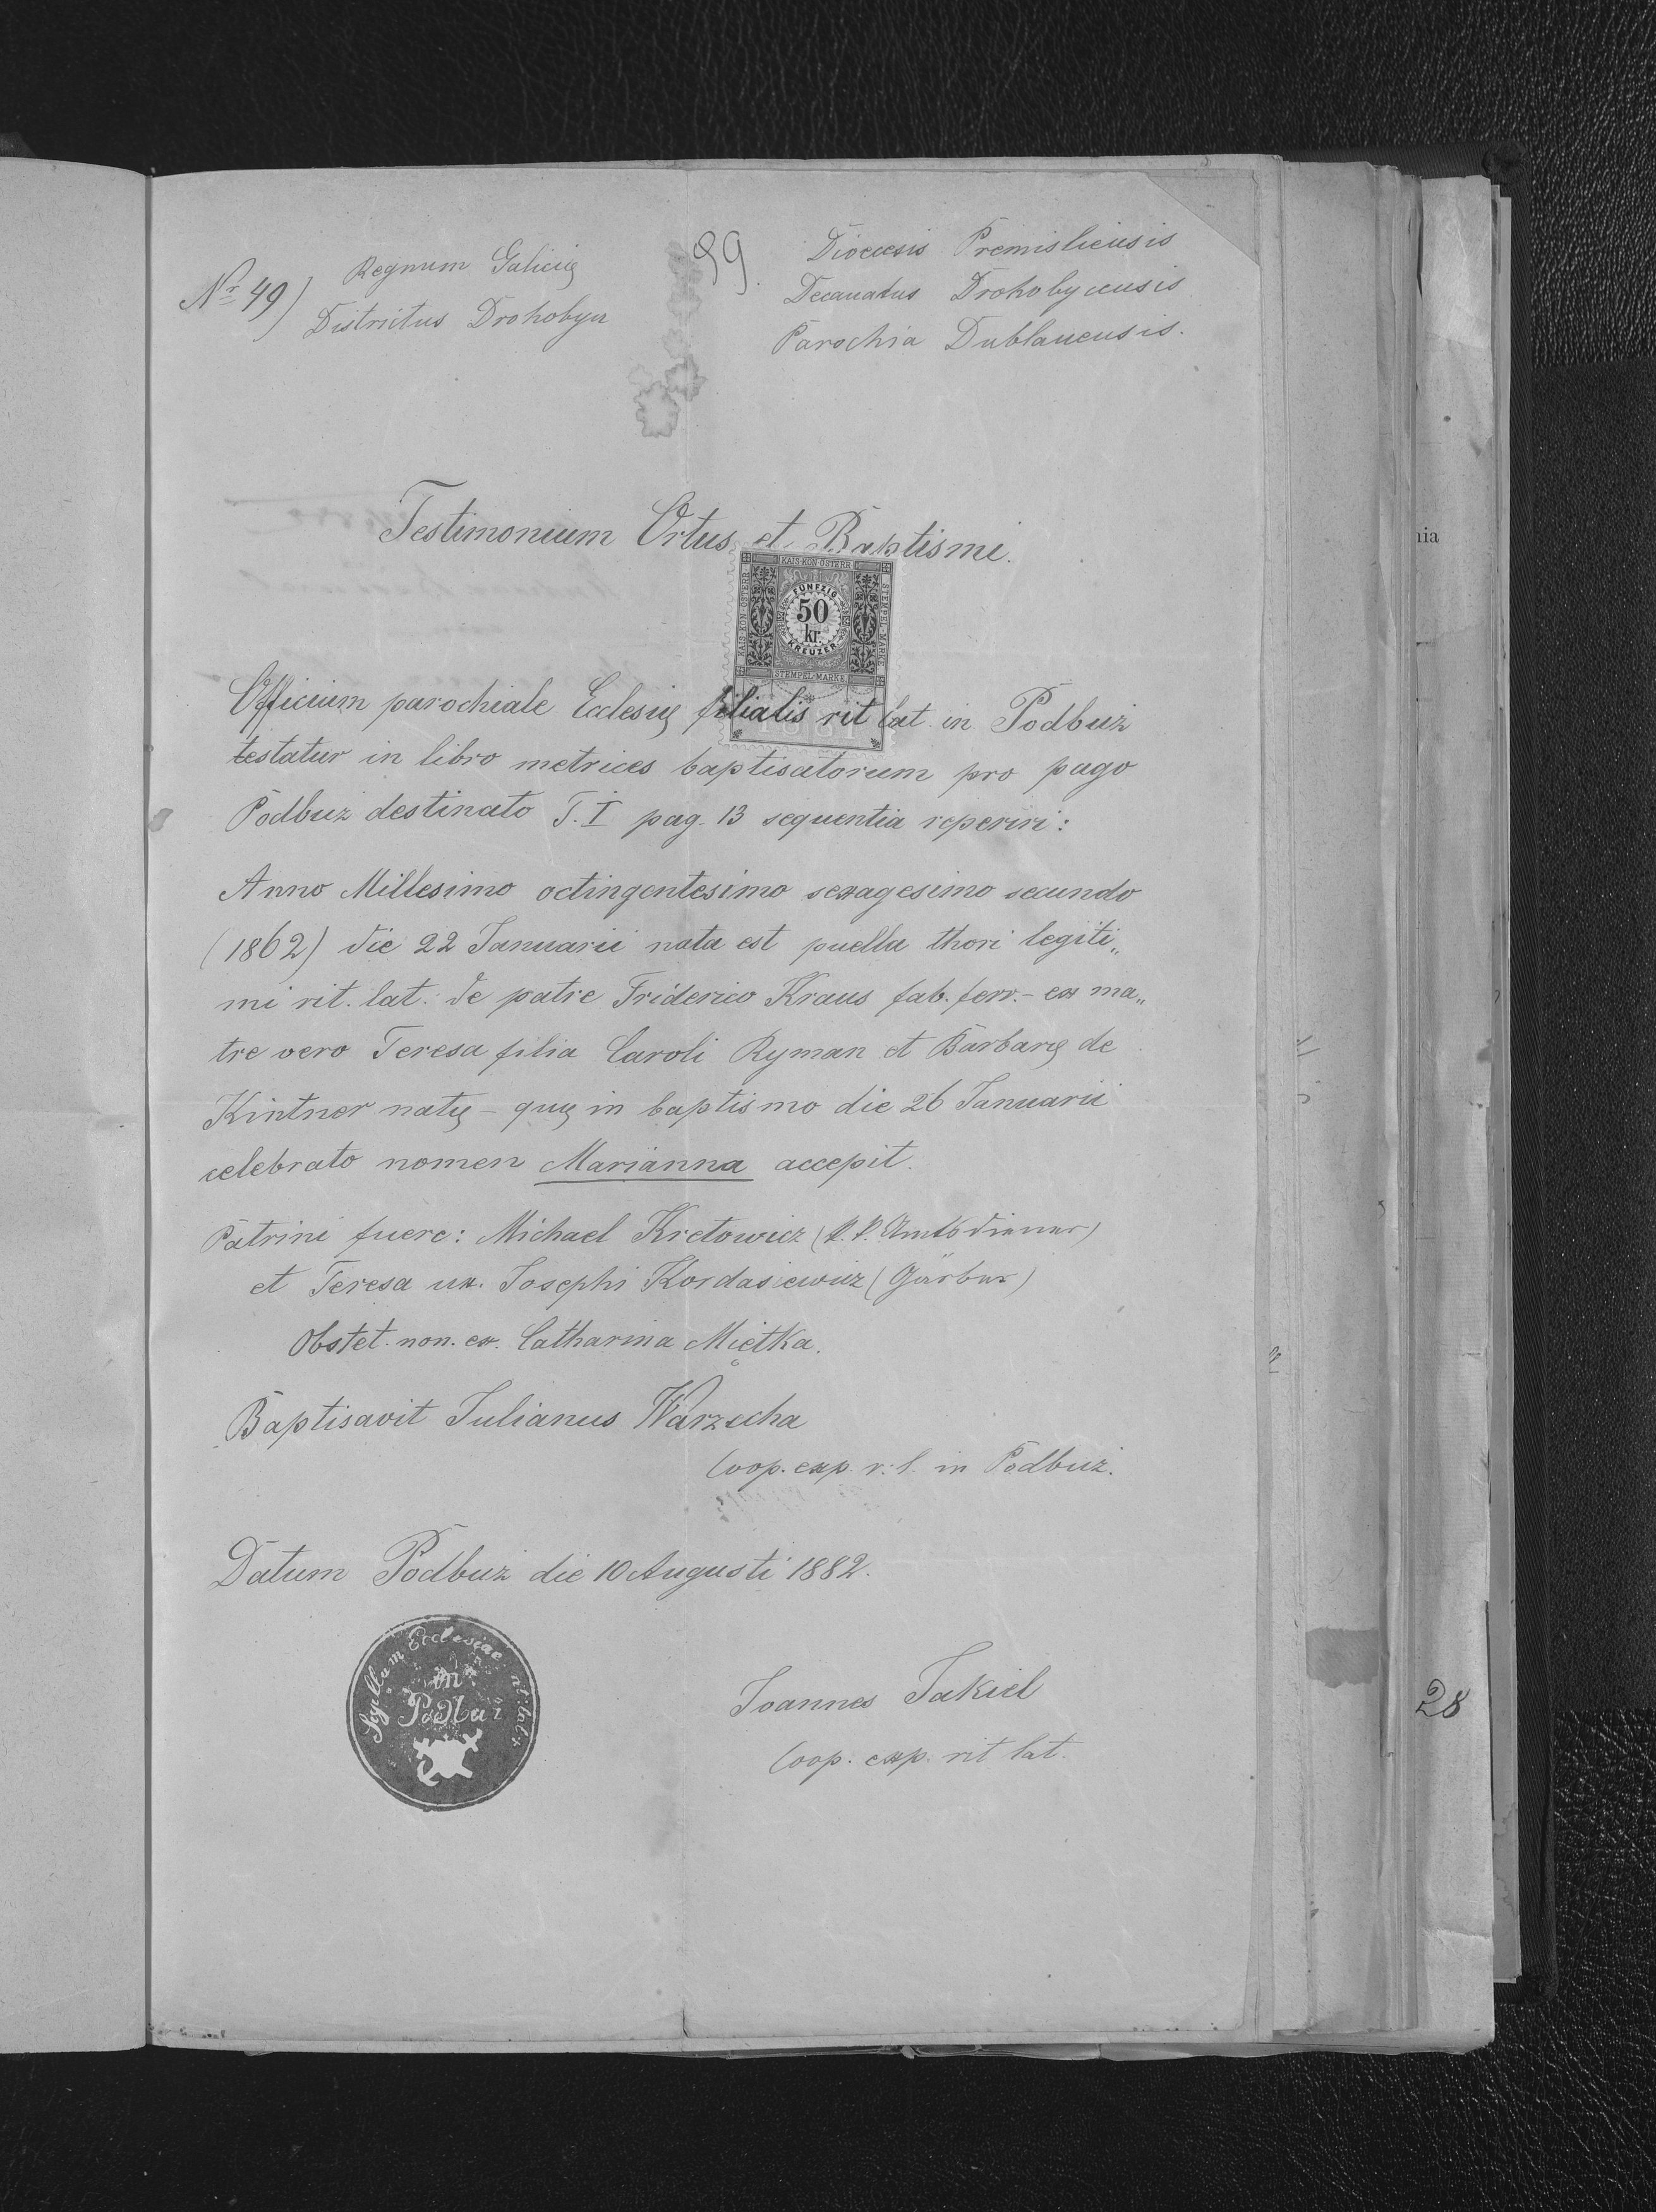 Nr 49)
Regnum Galicię
Districtus Drohobycz
99.
Dioecesis Premisliensis
Decanatus Drohobycensis
Parochia Dublanensis.
Testimonium Ortus et Baptismi.
KAIS. KÖN. ÖSTERR.
KAIS. KÖN. ÖSTERR.
STEMPEL-MARKE
FÜNFZIG
50
kr.
KREUZER
STEMPEL-MARKE
Officium parochiale Ecclesię filialis rit lat in Podbuż
testatur in libro metrices baptisatorum pro pago
Podbuż destinato T. I pag. 13 sequentia reperiri:
Anno Millesimo octingentesimo sexagesimo secundo
(1862) die 22 Januarii nata est puella thori legiti„
mi rit. lat. de patre Friderico Kraus fab. ferr. - ex ma„
tre vero Teresa filia Caroli Ryman et Barbarę de
Kintner natę - quę in baptismo die 26 Januarii
celebrato nomen Marianna accepit.
Patrini fuere: Michael Kretowicz (k. k. Amtsdiener)
et Teresa ux. Josephi Kordasiewicz (Gärber)
Obstet. non. ex. Catharina Miętka.
Baptisavit Julianus Warzecha
Coop. exp. r. l. in Podbuż.
Datum Podbuż die 10 Augusti 1882.
Sigillum Ecclesiae rit. lat.
in
Podbuż
Joannes Jakiel
Coop. exp. rit lat.
nia
28